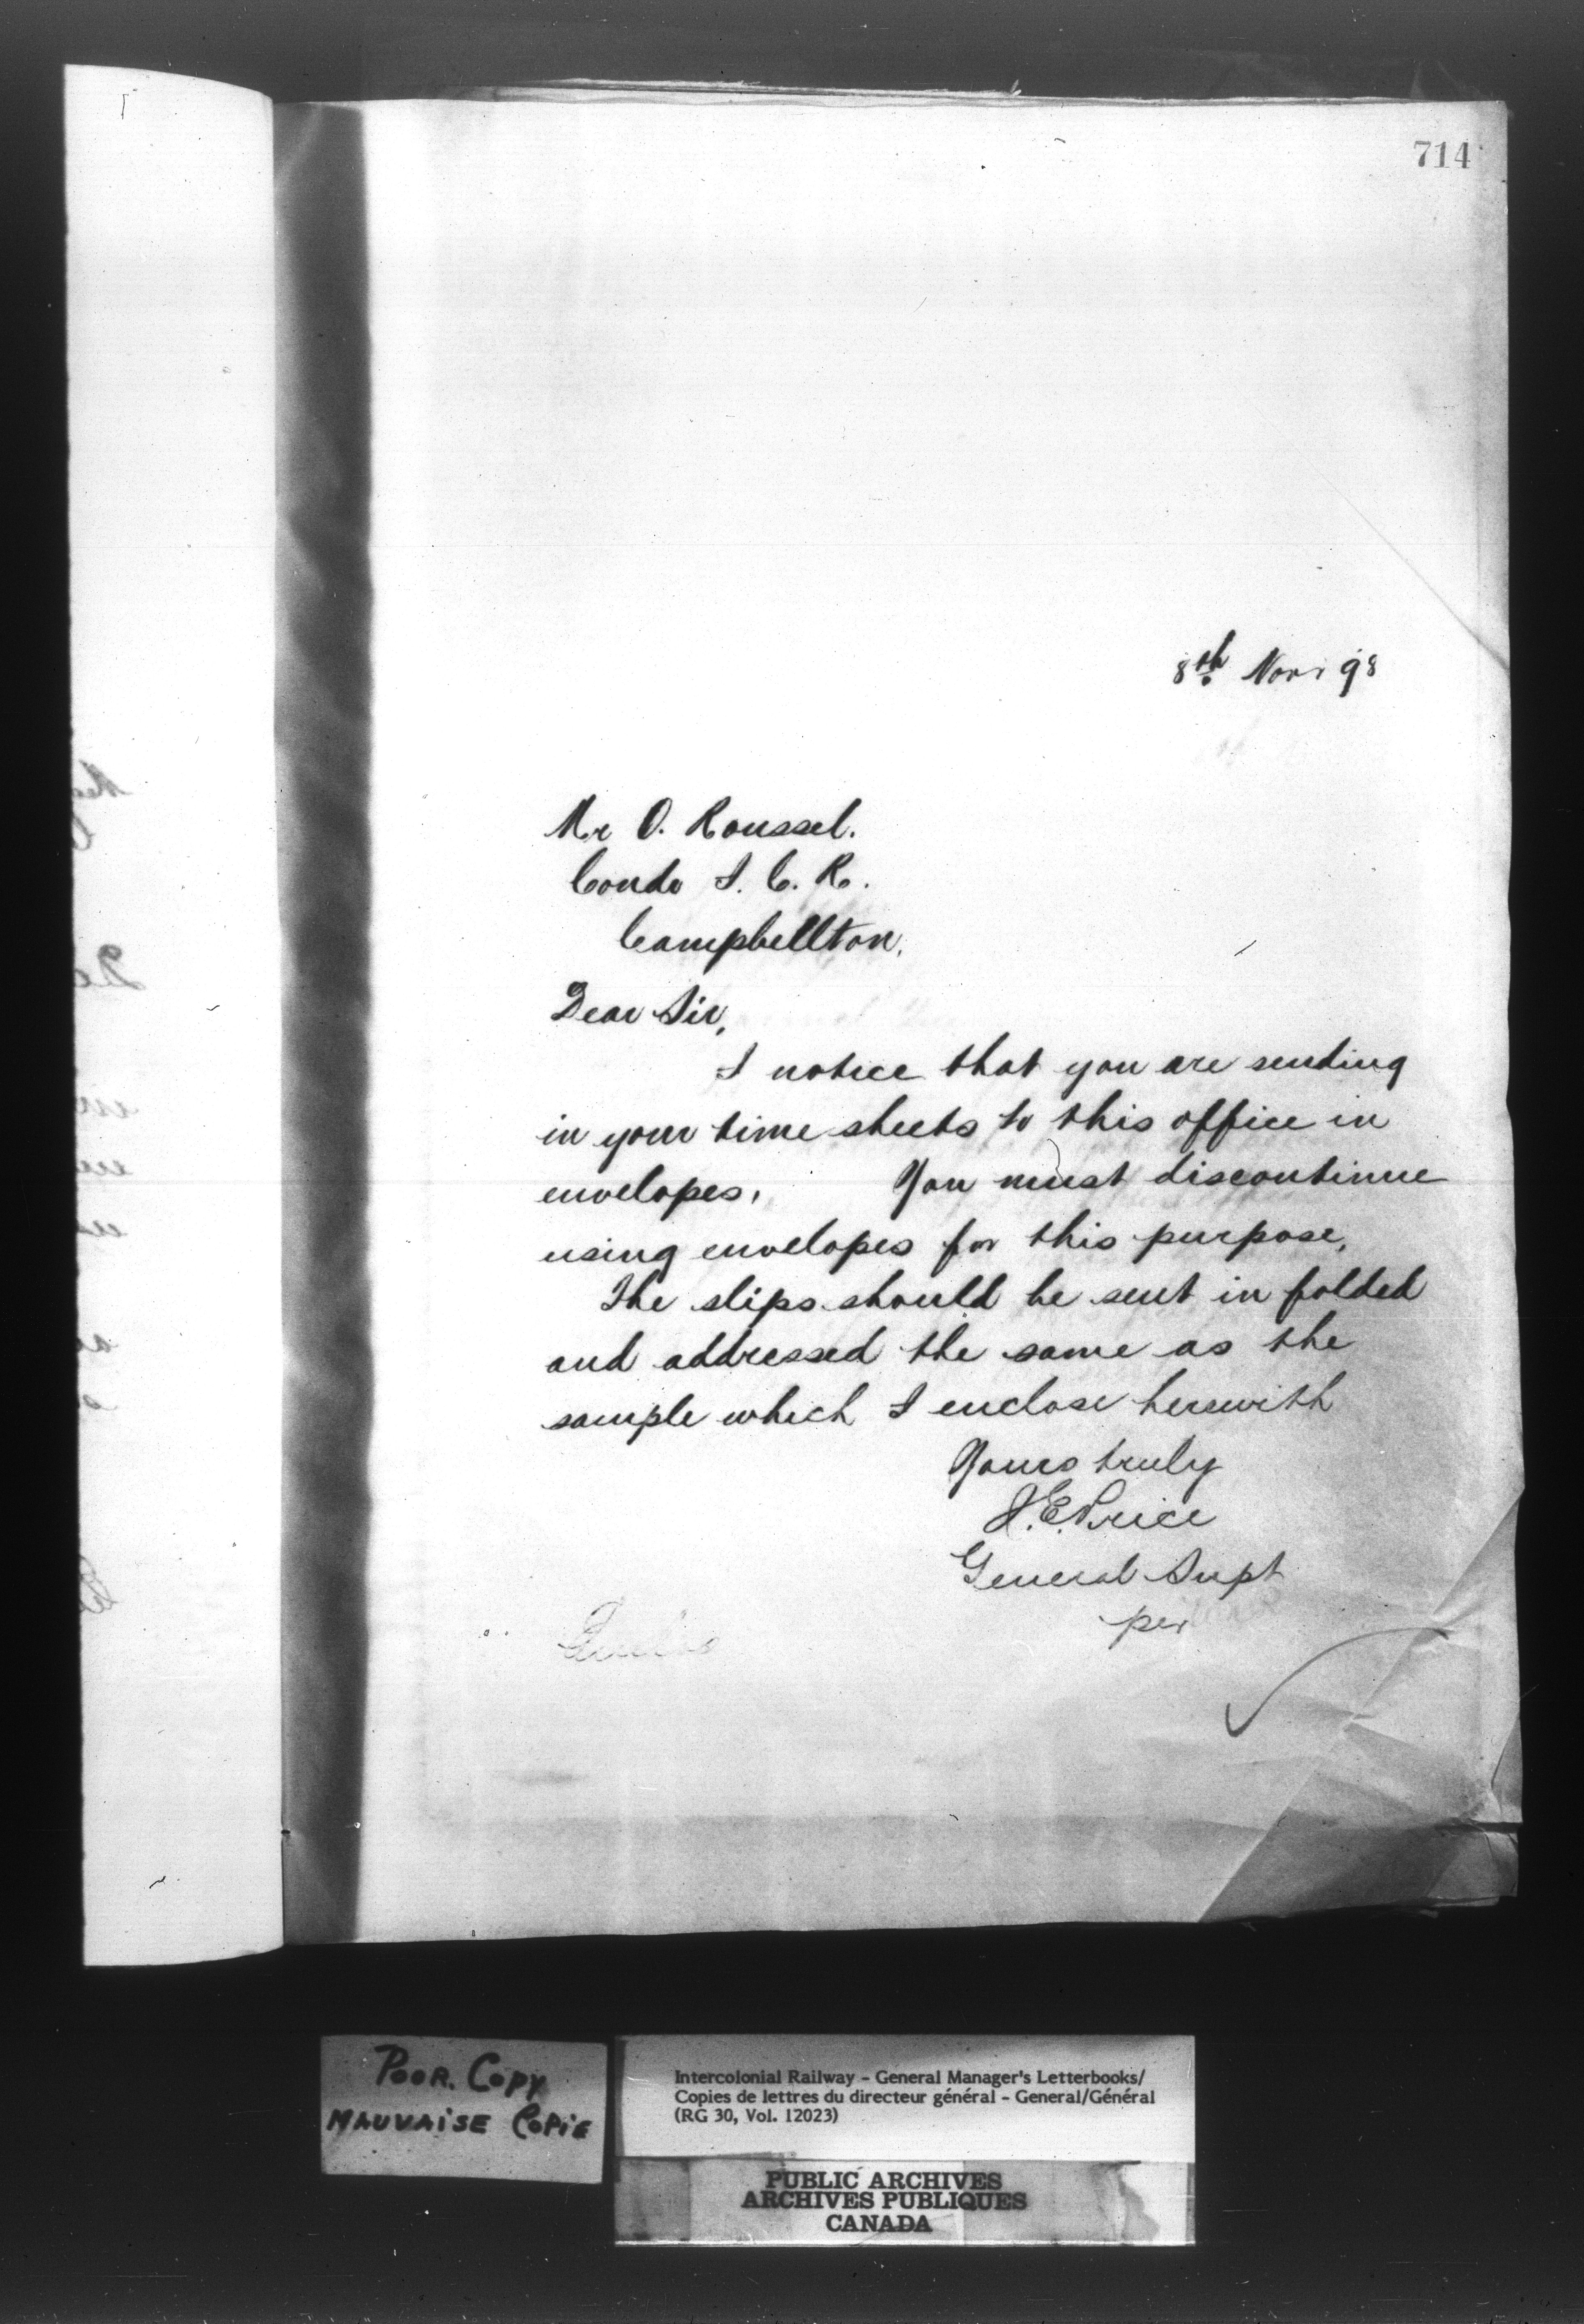 714
8th Nov. 98
Mr O. Roussel.
Condr I. C. R.
Campbellton.
Dear Sir,
I notice that you are sending
in your time sheets to this office in
envelopes. You must discontinue
using envelopes for this purpose.
The slips should be sent in folded
and addressed the same as the
sample which I enclose herewith
Yours truly
J.E. Price
General Supt
per
POOR. COPY
MAUVAISE COPIE
Intercolonial Railway - General Manager's Letterbooks/
Copies de lettres du directeur général - General/Général
(RG 30, Vol. 12023)
PUBLIC ARCHIVES
ARCHIVES PUBLIQUES
CANADA